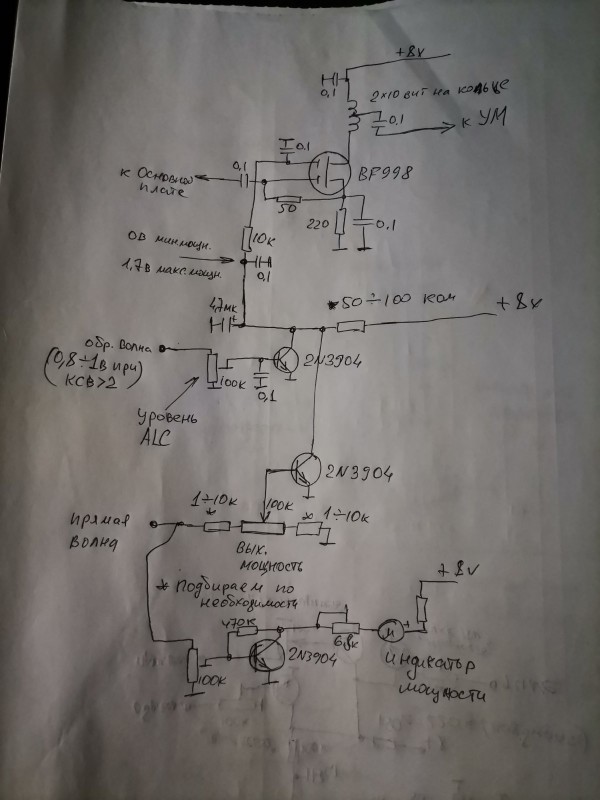 +8v
0,1
2×10 вит на кольце
0,1
к УМ
0,1
0,1
BF998
к Основной
плате
50
220
0,1
10к
0В мин мощн.
1,7В макс.мощн.
0,1
4,7мк
*50÷100 ком
+8v
обр. волна
(0,8÷1В при
КСВ>2)
2N3904
100к
0,1
уровень
ALC
2N3904
1÷10к
*
100к
*
1÷10к
прямая
волна
вых.
мощность
* Подбираем по
необходимости
+8v
470к
2N3904
6,8к
м
+
100к
индикатор
мощности